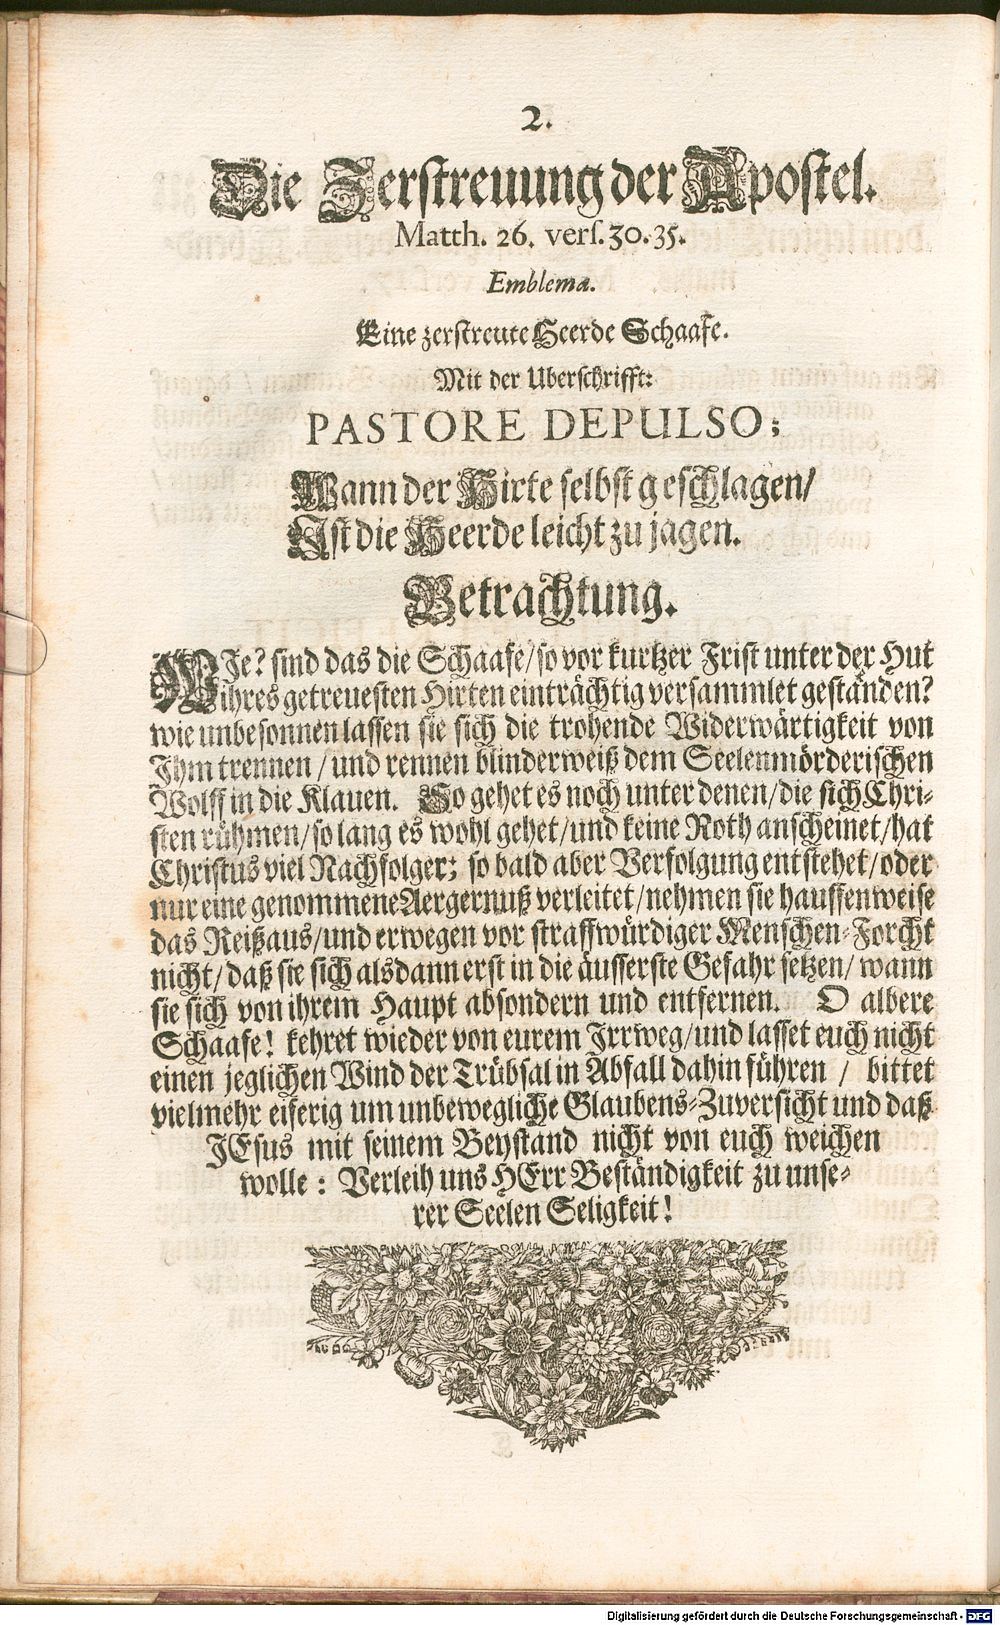 2.
Die Zerstreuung der Apostel.
Matth. 26. vers. 30. 35.
Emblema.
Eine zerstreute Heerde Schaafe.
Mit der Uberschrifft:
PASTORE DEPULSO;
Wann der Hirte selbst geschlagen/
Ist die Heerde leicht zu jagen.
Betrachtung.
WJe? sind das die Schaafe/so vor kurtzer Frist unter der Hut
ihres getreuesten Hirten einträchtig versammlet geständen?
wie unbesonnen lassen sie sich die trohende Widerwärtigkeit von
Jhm trennen/und rennen blinderweiß dem Seelenmörderischen
Wolff in die Klauen. So gehet es noch unter denen/die sich Chri-
sten rühmen/so lang es wohl gehet/und keine Noth anscheinet/hat
Christus viel Nachfolger; so bald aber Verfolgung entstehet/oder
nur eine genommene Aergernuß verleitet/nehmen sie hauffenweise
das Reißaus/und erwegen vor straffwürdiger Menschen-Forcht
nicht/daß sie sich alsdann erst in die äusserste Gefahr setzen/wann
sie sich von ihrem Haupt absondern und entfernen. O albere
Schaafe! kehret wieder von eurem Jrrweg/und lasset euch nicht
einen jeglichen Wind der Trübsal in Abfall dahin führen / bittet
vielmehr eiferig um unbewegliche Glaubens-Zuversicht und daß
JEsus mit seinem Beystand nicht von euch weichen
wolle: Verleih uns HErr Beständigkeit zu unse-
rer Seelen Seligkeit!
Digitalisierung gefördert durch die Deutsche Forschungsgemeinschaft - DFG